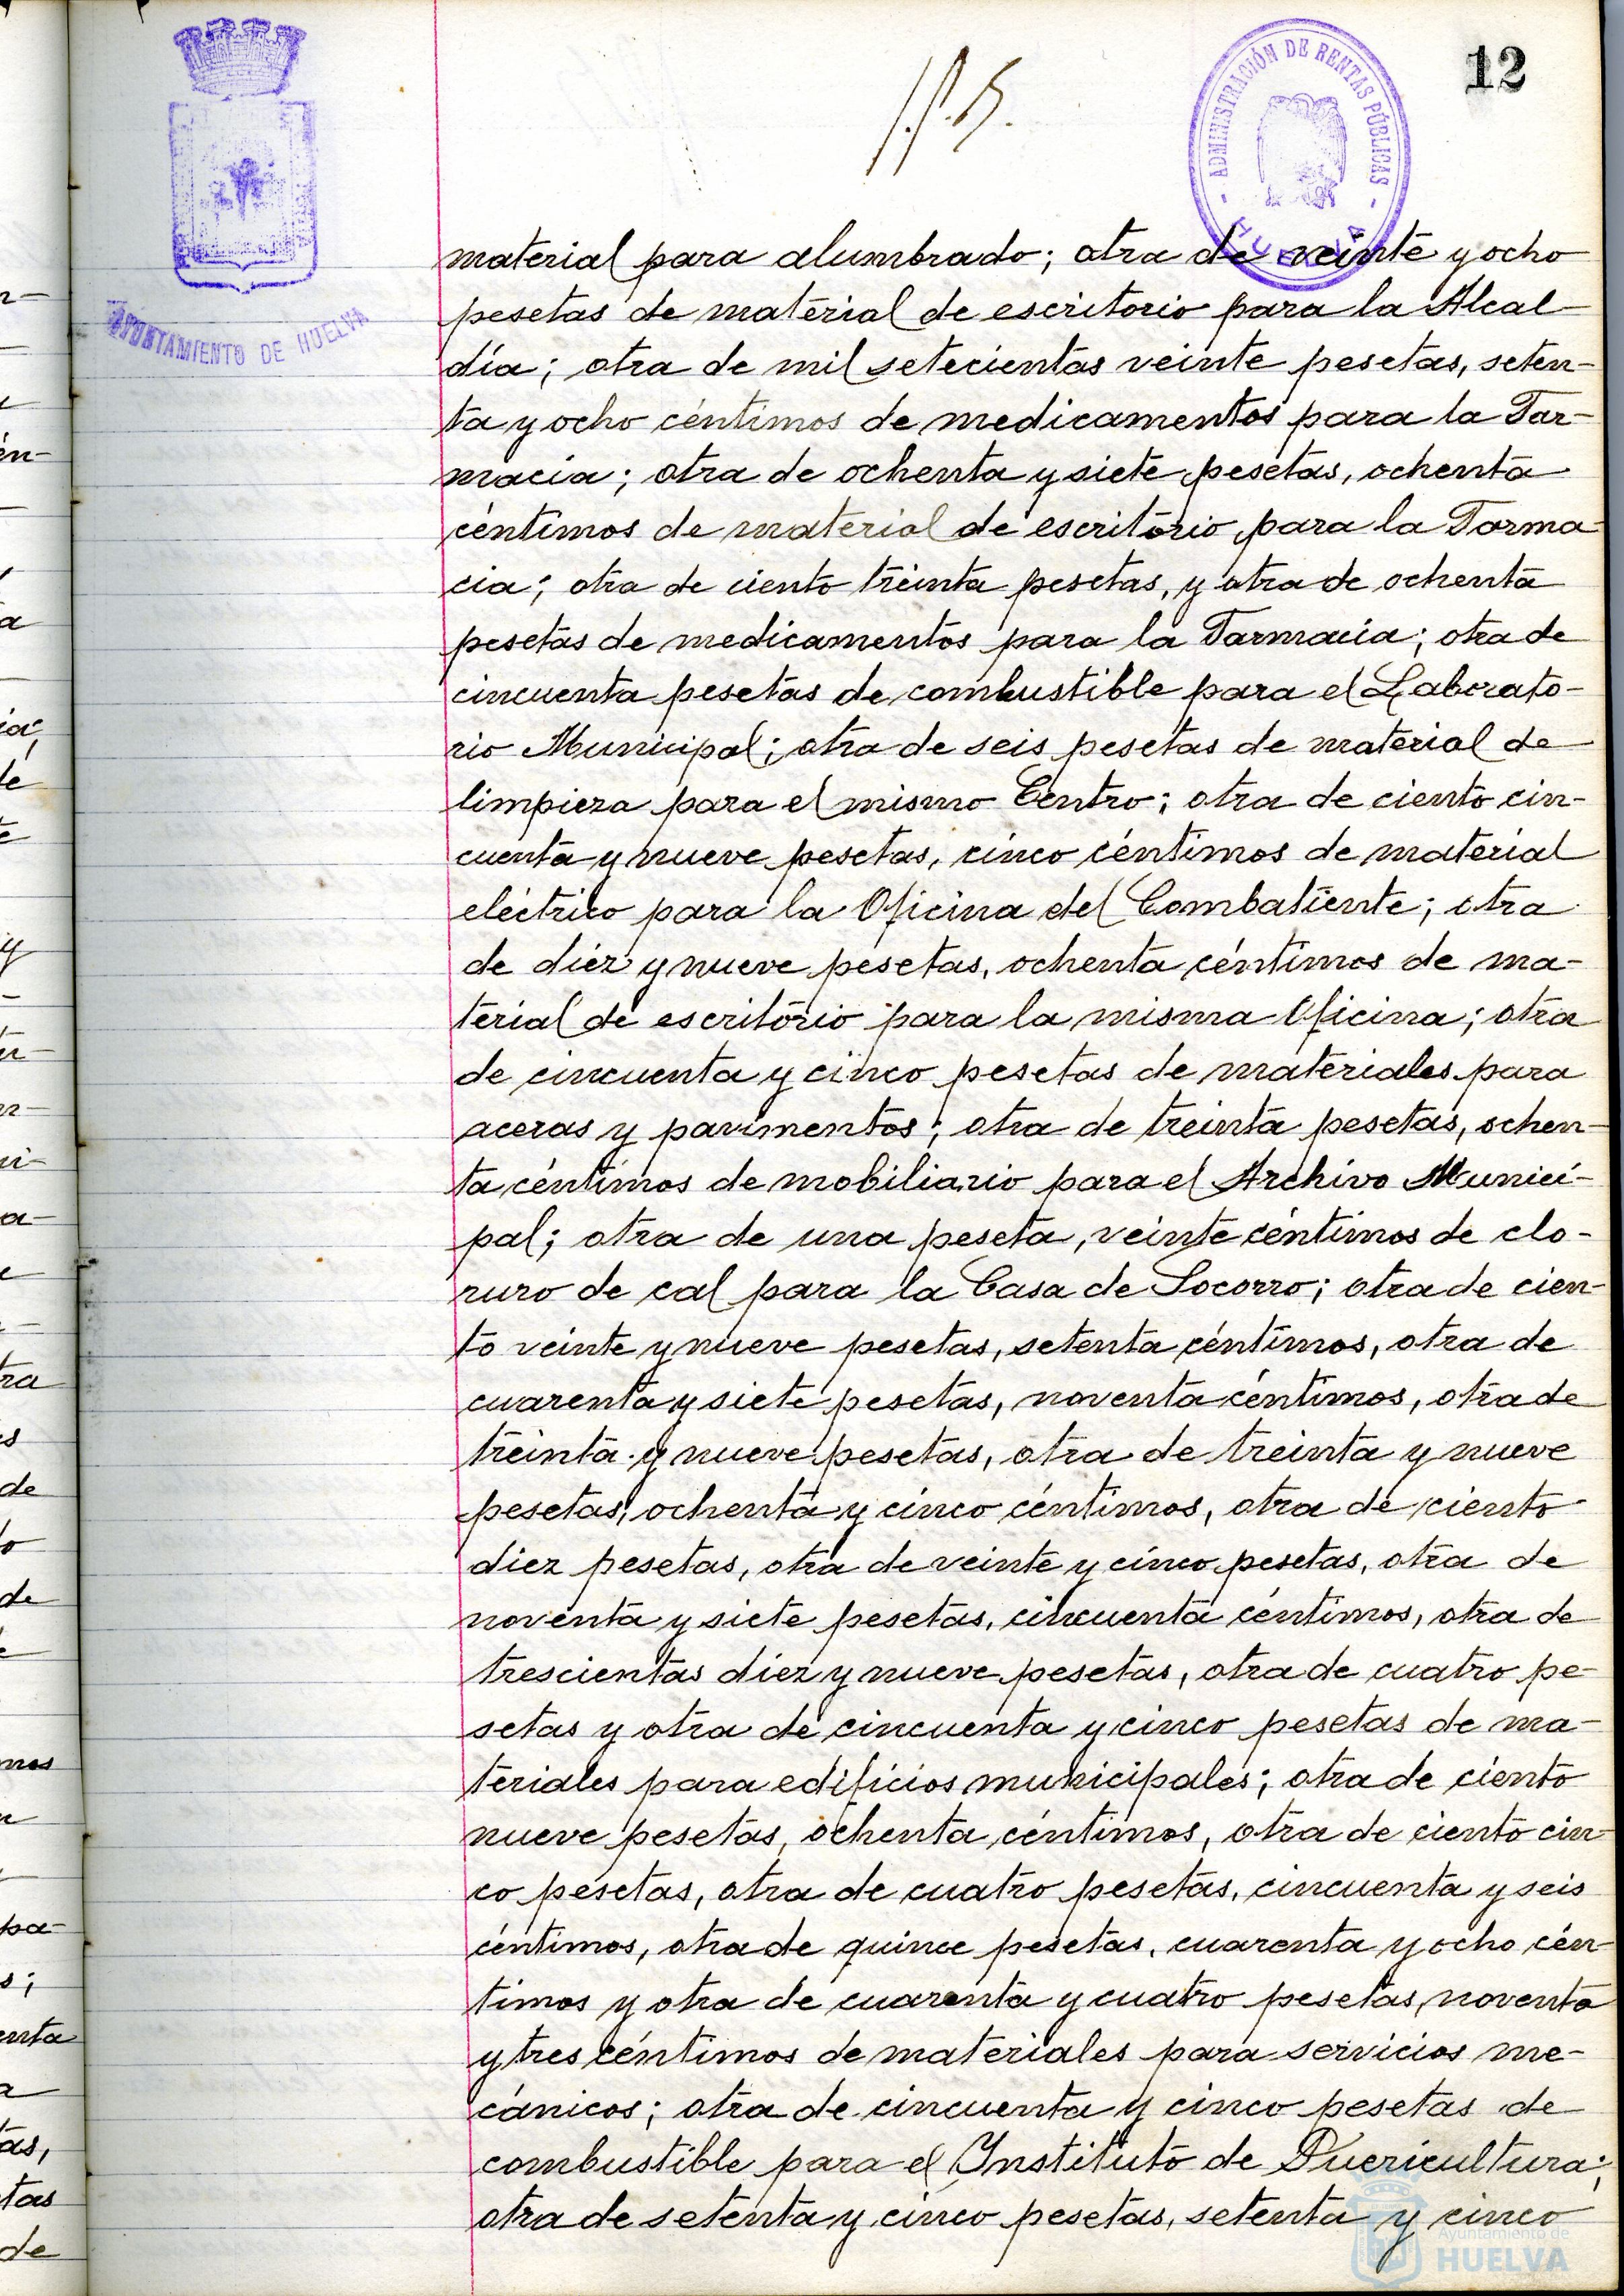 12
ADMINISTRACIÓN DE RENTAS PÚBLICAS
HUELVA
AYUNTAMIENTO DE HUELVA
material para alumbrado; otra de veinte y ocho
pesetas de material de escritorio para la Alcal-
día; otra de mil setecientas veinte pesetas, seten-
ta y ocho céntimos de medicamentos para la Far-
macia; otra de ochenta y siete pesetas, ochenta
céntimos de material de escritorio para la Farma-
cia; otra de ciento treinta pesetas, y otra de ochenta
pesetas de medicamentos para la Farmacia; otra de
cincuenta pesetas de combustible para el Laborato-
rio Municipal; otra de seis pesetas de material de
limpieza para el mismo Centro; otra de ciento cin-
cuenta y nueve pesetas, cinco céntimos de material
eléctrico para la Oficina del Combatiente; otra
de diez y nueve pesetas, ochenta céntimos de ma-
terial de escritorio para la misma Oficina; otra
de cincuenta y cinco pesetas de materiales para
aceras y pavimentos; otra de treinta pesetas, ochen-
ta céntimos de mobiliario para el Archivo Munici-
pal; otra de una peseta, veinte céntimos de clo-
ruro de cal para la Casa de Socorro; otra de cien-
to veinte y nueve pesetas, setenta céntimos, otra de
cuarenta y siete pesetas, noventa céntimos, otra de
treinta y nueve pesetas, otra de treinta y nueve
pesetas, ochenta y cinco céntimos, otra de ciento
diez pesetas, otra de veinte y cinco pesetas, otra de
noventa y siete pesetas, cincuenta céntimos, otra de
trescientas diez y nueve pesetas, otra de cuatro pe-
setas y otra de cincuenta y cinco pesetas de ma-
teriales para edificios municipales; otra de ciento
nueve pesetas, ochenta céntimos, otra de ciento cin-
co pesetas, otra de cuatro pesetas, cincuenta y seis
céntimos, otra de quince pesetas, cuarenta y ocho cén-
timos y otra de cuarenta y cuatro pesetas, noventa
y tres céntimos de materiales para servicios me-
cánicos; otra de cincuenta y cinco pesetas de
combustible para el Instituto de Puericultura;
otra de setenta y cinco pesetas, setenta y cinco
Ayuntamiento de
HUELVA